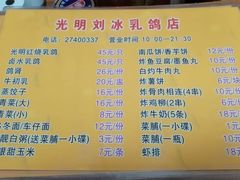 光明刘冰乳鸽店
电话：27400337 营业时间10:00-21:30
光明红烧乳鸽 45元/只 南瓜饼/香芋饼 12元/份
卤水乳鸽 45元/只 炸鱼豆腐/墨鱼丸 12元/份
鸽肾 26元/份 白灼牛肉丸 17元/份
牛初乳 20元/份 炸薯条 12元/份
蒸饺子 16元/份 炸骨肉相连(4串) 16元/份
青菜(大) 16元/份 炸鸡柳(2串) 8元/份
青菜(小) 8元/份 炸牛奶(5条) 18元/份
冬面/车仔面 12元/份 菜脯(一小碟) 3元/份
靓白粥(送菜脯一小碟) 3元/份 菜脯(一瓶) 10元/份
甜玉米 7元/条 虾排 18元/份